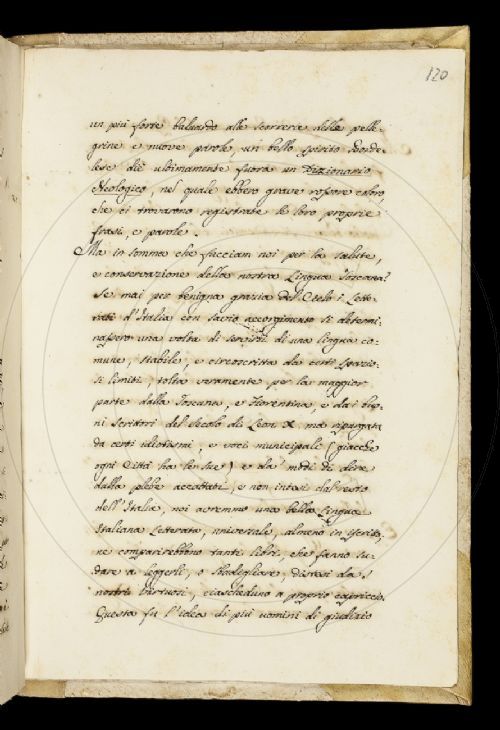 120
un più forte baluardo alle scorrerie delle pelle-
grine e nuove parole, un bello spirito Borde-
lese diè ultimamente fuora un Dizionario
Neologico, nel quale ebbero grave rossore coloro,
che ci trovarono registrate le loro proprie
frasi, e parole.
Ma in somma che facciam noi per la salute,
e conservazione della nostra Lingua Toscana?
Se mai per benigna grazia del Cielo i Lette-
rati d'Italia con savio accorgimento si determi-
nassero una volta di servirsi di una lingua co-
mune, stabile, e circoscritta da certi spazio-
si limiti, tolta veramente per la maggior
parte dalla Toscana, e Fiorentina, e dai buo-
ni Scrittori del Secolo di Leon X. ma ripurgata
da certi idiotismi, e voci municipali (giacchè
ogni Città ha le sue) e da' modi di dire
dalla plebe accattati, e non intesi dal resto
dell'Italia, noi avremmo una bella Lingua
Italiana Letterata, universale, almeno in iscritto,
ne comparirebbono tanti libri, che fanno su-
dare a leggerli, o sbadigliare, distesi da i
nostri barbassori, ciascheduno a proprio capriccio.
Questa fu l'idea di più uomini di giudizio